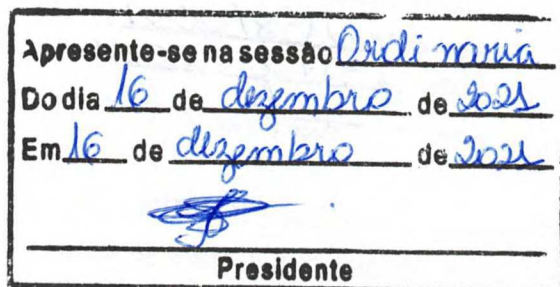 Apresente-se na sessão Ordinaria
Do dia 16 de dezembro de 2021
Em 16 de dezembro de 2021
Presidente